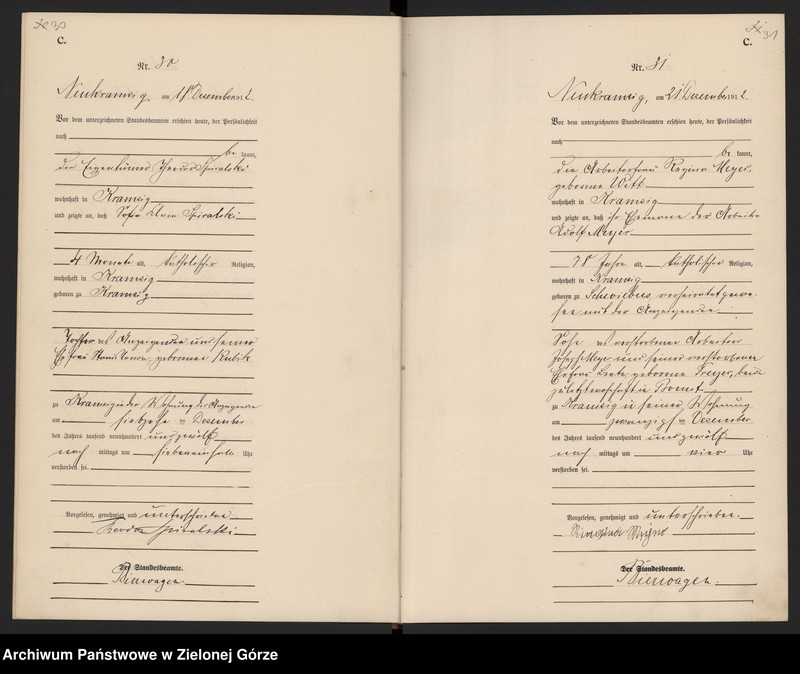 30
C.
Nr. 30
Neukramzig, am 18 December 1912.
Vor dem unterzeichneten Standesbeamten erschien heute, der Persönlichkeit
nach
be kannt,
der Eigentümer Theodor Spiralski
wohnhaft in Kramzig
und zeigte an, daß Sofie Klara Spiralski
4 Monate alt, katholischer Religion,
wohnhaft in Kramzig
geboren zu Kramzig
Tochter des Anzeigenden und seiner
Ehefrau geborenen Kubik
zu Kramzig in der Wohnung des Anzeigenden
am siebzehn ten December
des Jahres tausend neunhundert und zwölf
nach mittags um siebeneinhalb Uhr
verstorben sei.
Vorgelesen, genehmigt und unterschrieben
Spiralski
Der Standesbeamte.
Bierwagen.
31
C.
Nr. 31
Neukramzig, am 21 December 1912.
Vor dem unterzeichneten Standesbeamten erschien heute, der Persönlichkeit
nach
be kannt,
die Arbeiterfrau Regina Meyer
geborene Witt
wohnhaft in Kramzig
und zeigte an, daß ihr Ehemann der Arbeiter
Adolf Meyer
70 Jahre alt, katholischer Religion,
wohnhaft in Kramzig
geboren zu Schwiebus, verheiratet gewe-
sen mit der Anzeigenden
Sohn des verstorbenen Arbeiters
Joseph Meyer und seiner verstorbenen
Ehefrau geborene beide
zuletzt wohnhaft in Bomst
zu Kramzig in seiner Wohnung
am zwanzigs ten December
des Jahres tausend neunhundert und zwölf
nach mittags um vier Uhr
verstorben sei.
Vorgelesen, genehmigt und unterschrieben.
Der Standesbeamte.
Bierwagen.
Archiwum Państwowe w Zielonej Górze